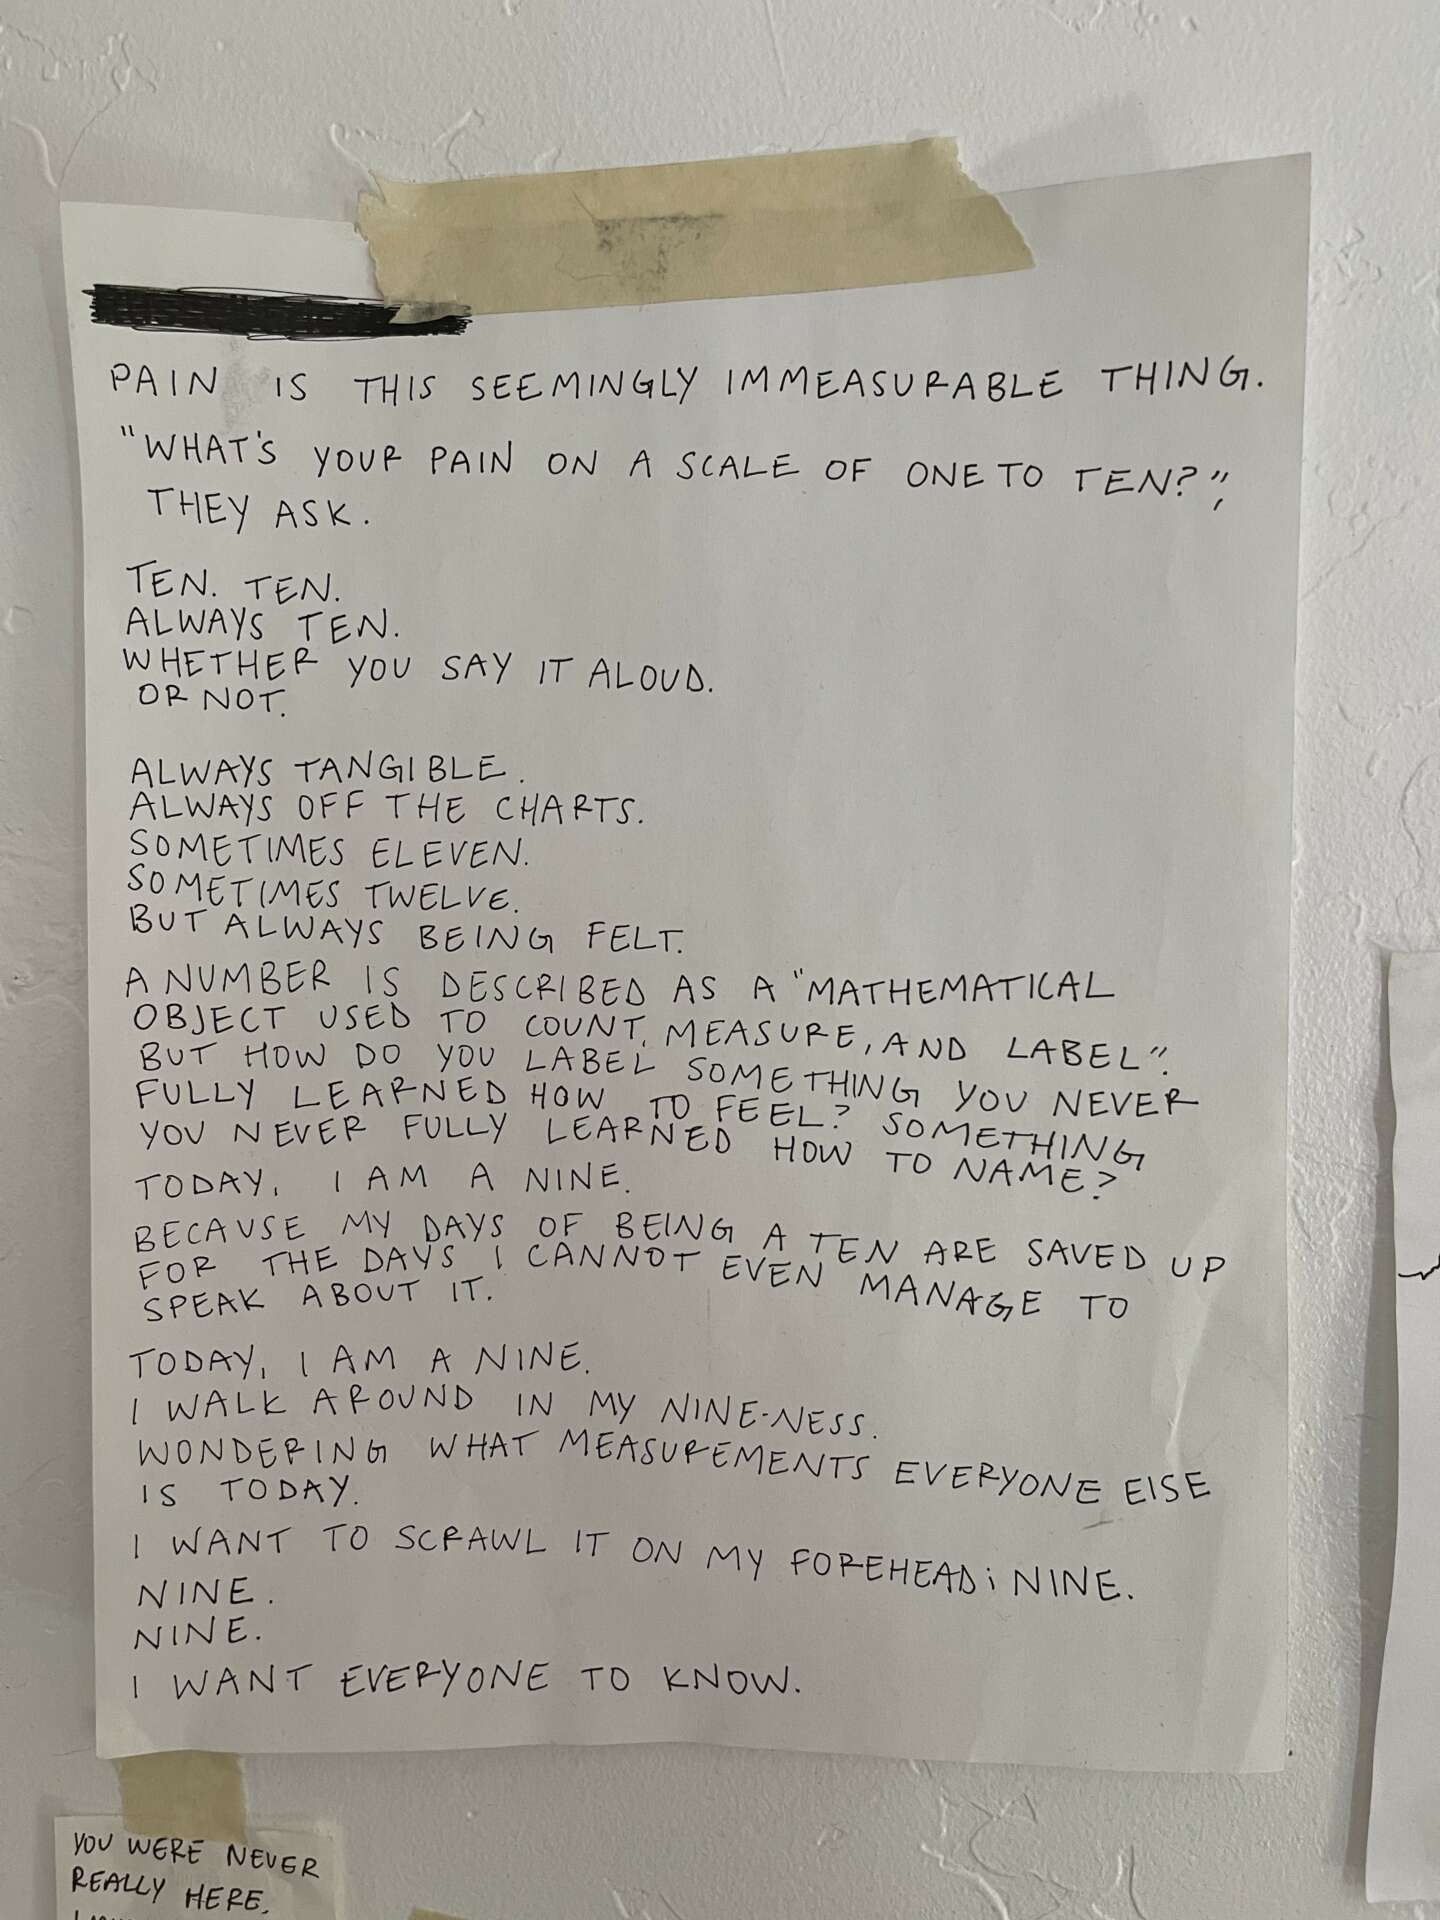 PAIN IS THIS SEEMINGLY IMMEASURABLE THING.
"WHAT'S YOUR PAIN ON A SCALE OF ONE TO TEN?",
THEY ASK.
TEN. TEN.
ALWAYS TEN.
WHETHER YOU SAY IT ALOUD.
OR NOT.
ALWAYS TANGIBLE.
ALWAYS OFF THE CHARTS.
SOMETIMES ELEVEN.
SOMETIMES TWELVE.
BUT ALWAYS BEING FELT.
A NUMBER IS DESCRIBED AS A "MATHEMATICAL
OBJECT USED TO COUNT, MEASURE, AND LABEL".
BUT HOW DO YOU LABEL SOMETHING YOU NEVER
FULLY LEARNED HOW TO FEEL? SOMETHING
YOU NEVER FULLY LEARNED HOW TO NAME?
TODAY, I AM A NINE.
BECAUSE MY DAYS OF BEING A TEN ARE SAVED UP
FOR THE DAYS I CANNOT EVEN MANAGE TO
SPEAK ABOUT IT.
TODAY, I AM A NINE.
I WALK AROUND IN MY NINE-NESS.
WONDERING WHAT MEASUREMENTS EVERYONE ELSE
IS TODAY.
I WANT TO SCRAWL IT ON MY FOREHEAD; NINE.
NINE.
NINE.
I WANT EVERYONE TO KNOW.
YOU WERE NEVER
REALLY HERE.